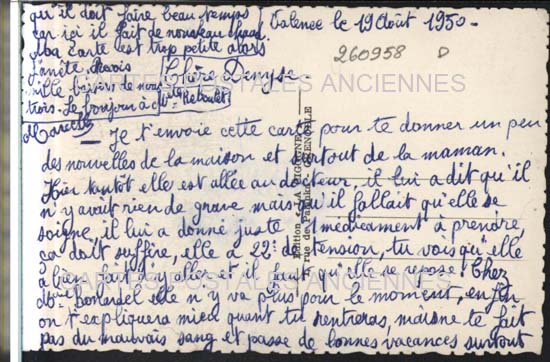 Valence le 19 Août 1950 -
260958 D
Chère Denyse -
Je t'envoie cette carte pour te donner un peu
des nouvelles de la maison et surtout de la maman.
Hier tantôt elle est allée au docteur, il lui a dit qu'il
n'y avait rien de grave mais qu'il fallait qu'elle se
soigne, il lui a donné juste 1 médicament à prendre,
ça doit suffire, elle a 22 de tension, tu vois qu'elle
a bien fait d'y aller et il faut qu'elle se repose! Chez
elle n'y va plus pour le moment, enfin
on t'expliquera mieux quant tu rentreras, mais ne te fait
pas du mauvais sang et passe de bonnes vacances surtout
qu'il doit faire beau temps
car ici il fait de nouveau chaud
Ma carte est trop petite alors
j'arrête, reçois
mille baisers de nous
trois. Le bonjour à
Mlle Reboulet
Marcelle
Edition
GRENOBLE
CARTES POSTALES ANCIENNES
CARTES POSTALES ANCIENNES